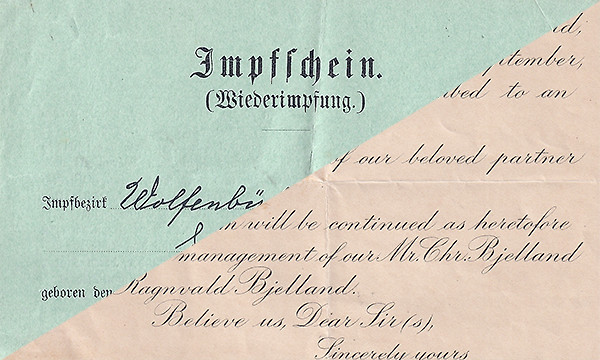 Impfschein.
(Wiederimpfung.)
Impfbezirk Wolfenbü
geboren den
d;
ptember,
bed to an
of our beloved partner
n will be continued as heretofore
management of our Mr. Chr. Bjelland
Ragnvald Bjelland.
Believe us, Dear Sir(s),
Sincerely yours